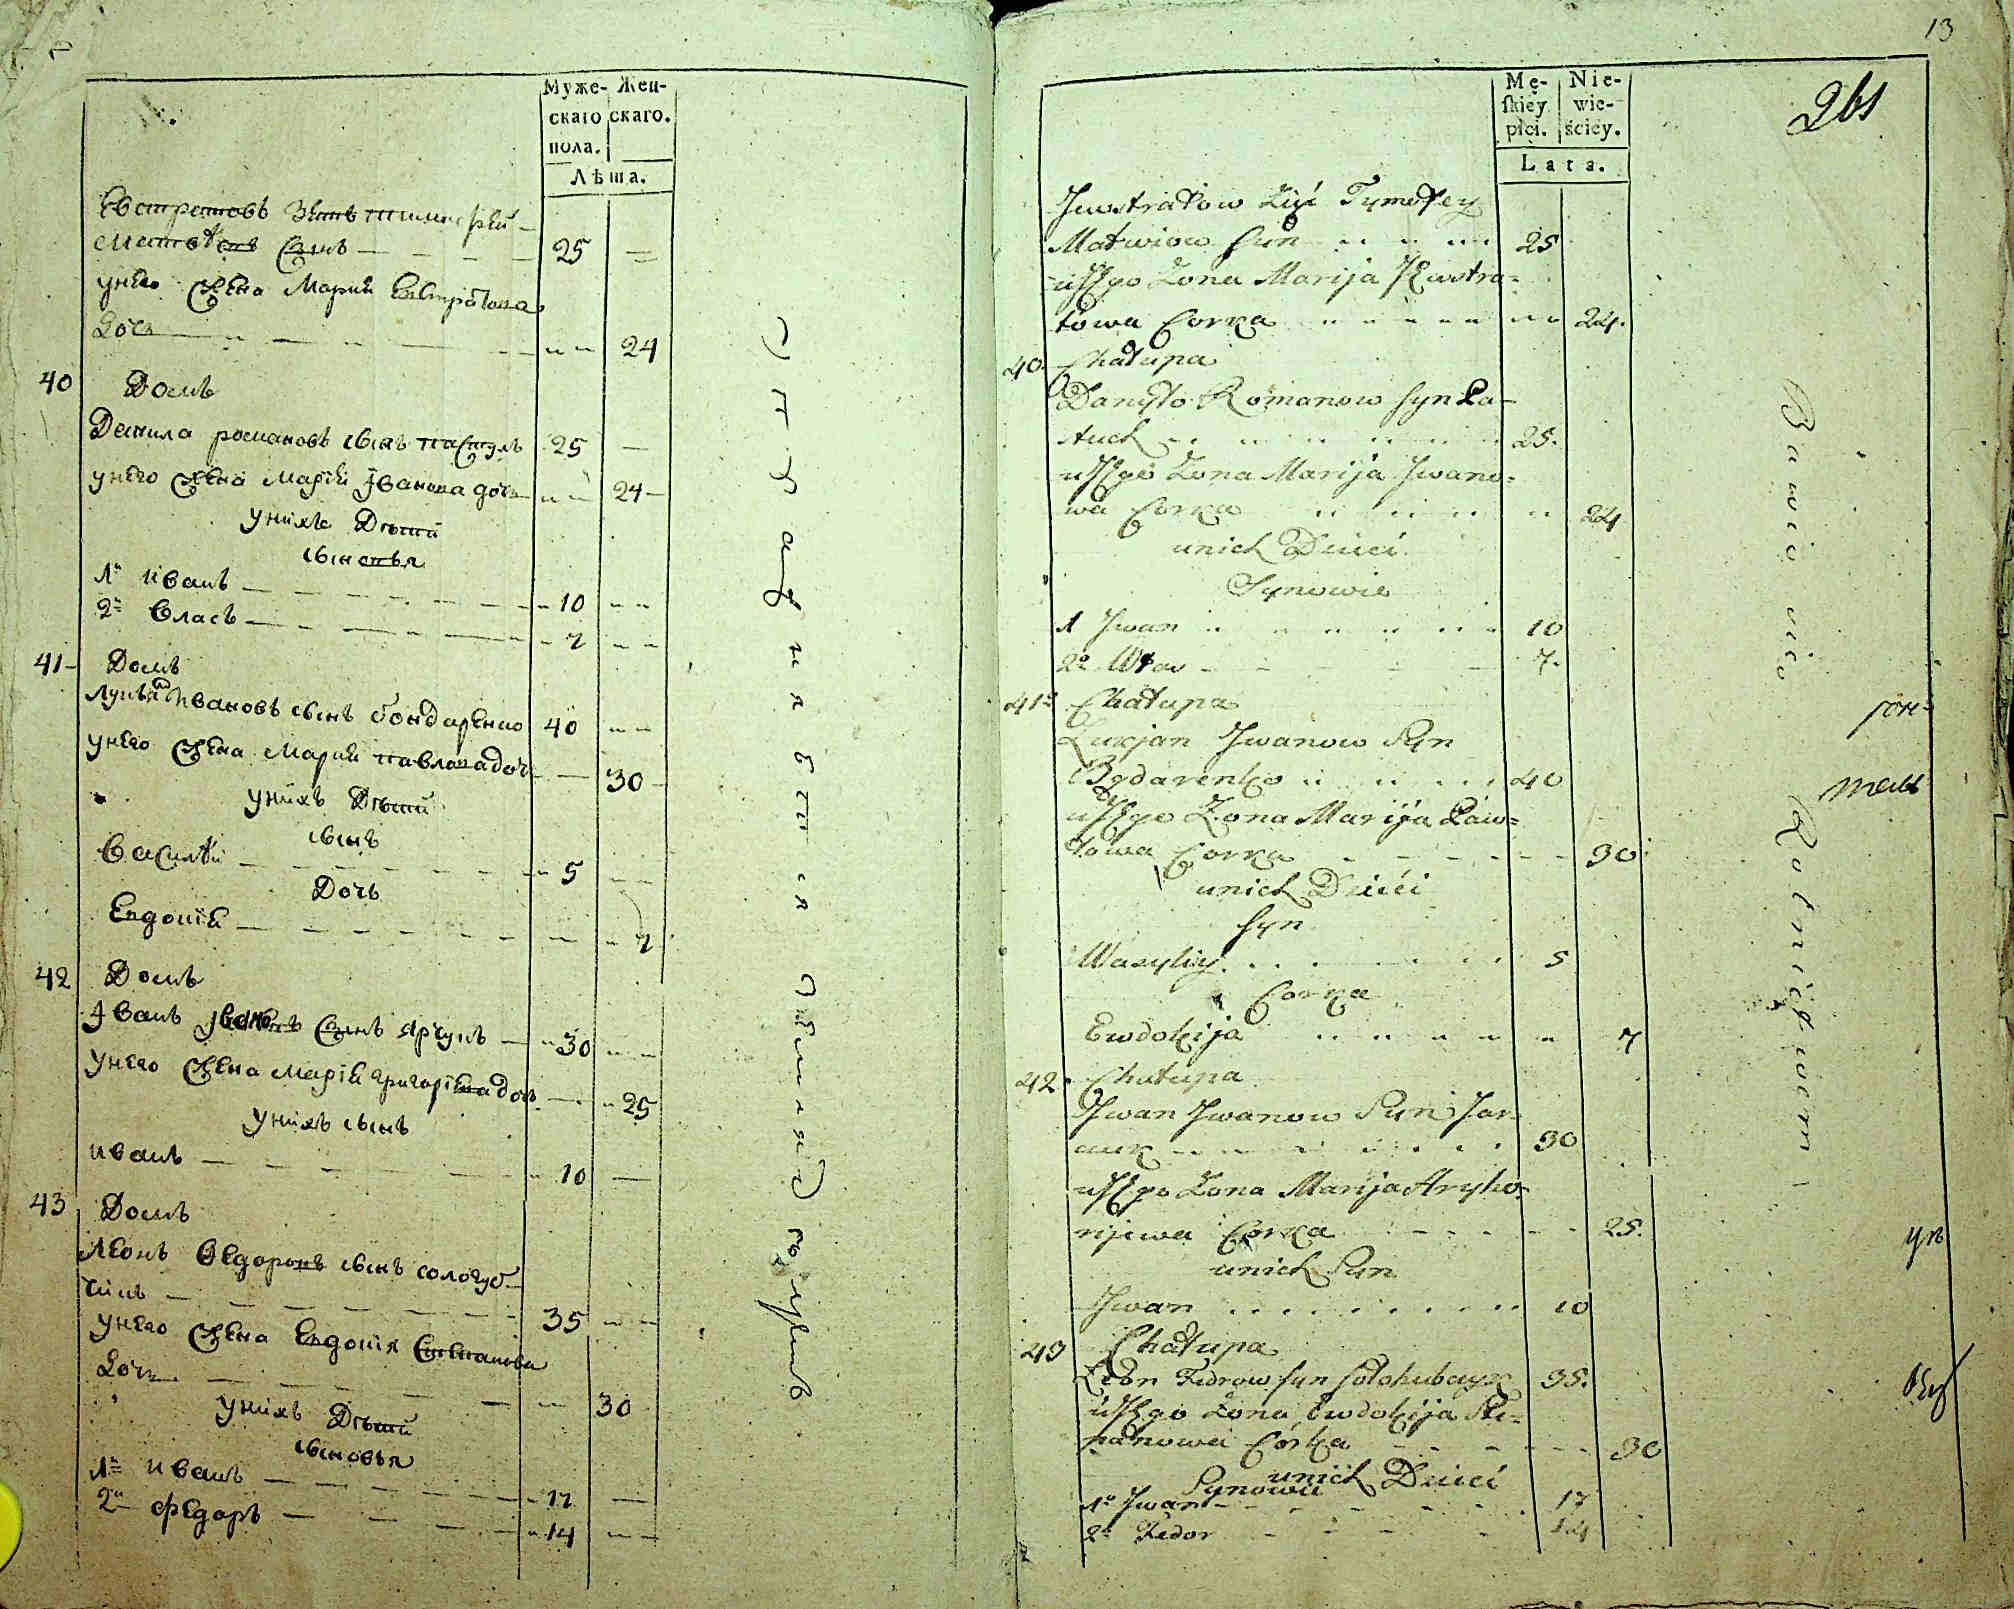 Муже- Жен-
скаго скаго.
пола.
Лѣта.
Евстратовъ зять тимофей
Матвѣевъ сынъ 25
унего жена Мария Евстратова
дочь 24
40 Домъ
Данила романовъ сынъ пастухъ 25
унего жена Марія Іванова дочь 24
унихъ Дѣти
сыновья
1й иванъ 10
2й власъ 7
41 Домъ
Лукьянъ Ивановъ сынъ бондаренко 40
унего жена Мария павлова дочь 30
унихъ Дѣти
сынъ
василѣй 5
Дочь
Евдокия 7
42 Домъ
Іванъ Івановъ сынъ ярчукъ 30
унего жена Марія григорїева дочь 25
унихъ сынъ
иванъ 10
43 Домъ
Леонъ Ѳедоровъ сынъ сологуб-
чикъ 35
унего жена Евдокія Степанова
дочь 30
унихъ Дѣти
сыновья
1й иванъ 17
2й Федоръ 14
13
261
Mę- Nie-
skiey wie-
płci. ściey.
Lata.
Jewstratow Zięć Tymofey
Matwiow Syn 25
u Jego Zona Marija Jewstra-
towa Corka 24.
40. Chałupa
Danyło Romanow Syn Pa-
stuch 25.
u Jego Zona Marija Jwano-
wa Corka 24
unich Dzieci
Synowie
1 Jwan 10
2° Własa 7.
41° Chałupa
Łukjan Jwanow Syn
Bondarenko 40
u Jego Zona Marija Paw-
łowa Corka 30
unich Dzieci
Syn
Wasyliy 5
Corka
Ewdokija 7
42 Chałupa
Jwan Jwanow Syn Jar-
czuk 30
u Jego Zona Marija Hryho-
rijewa Corka 25.
unich Syn
Jwan 10
43 Chałupa
Leon Fedrow Syn Sołohubczyk 35.
u Jego Zona Ewdokija Ste-
panowa Corka 30
unich Dzieci
Synowie
1° Jwan 17
2° Fedor 14
Bawio się
Rolnictwem